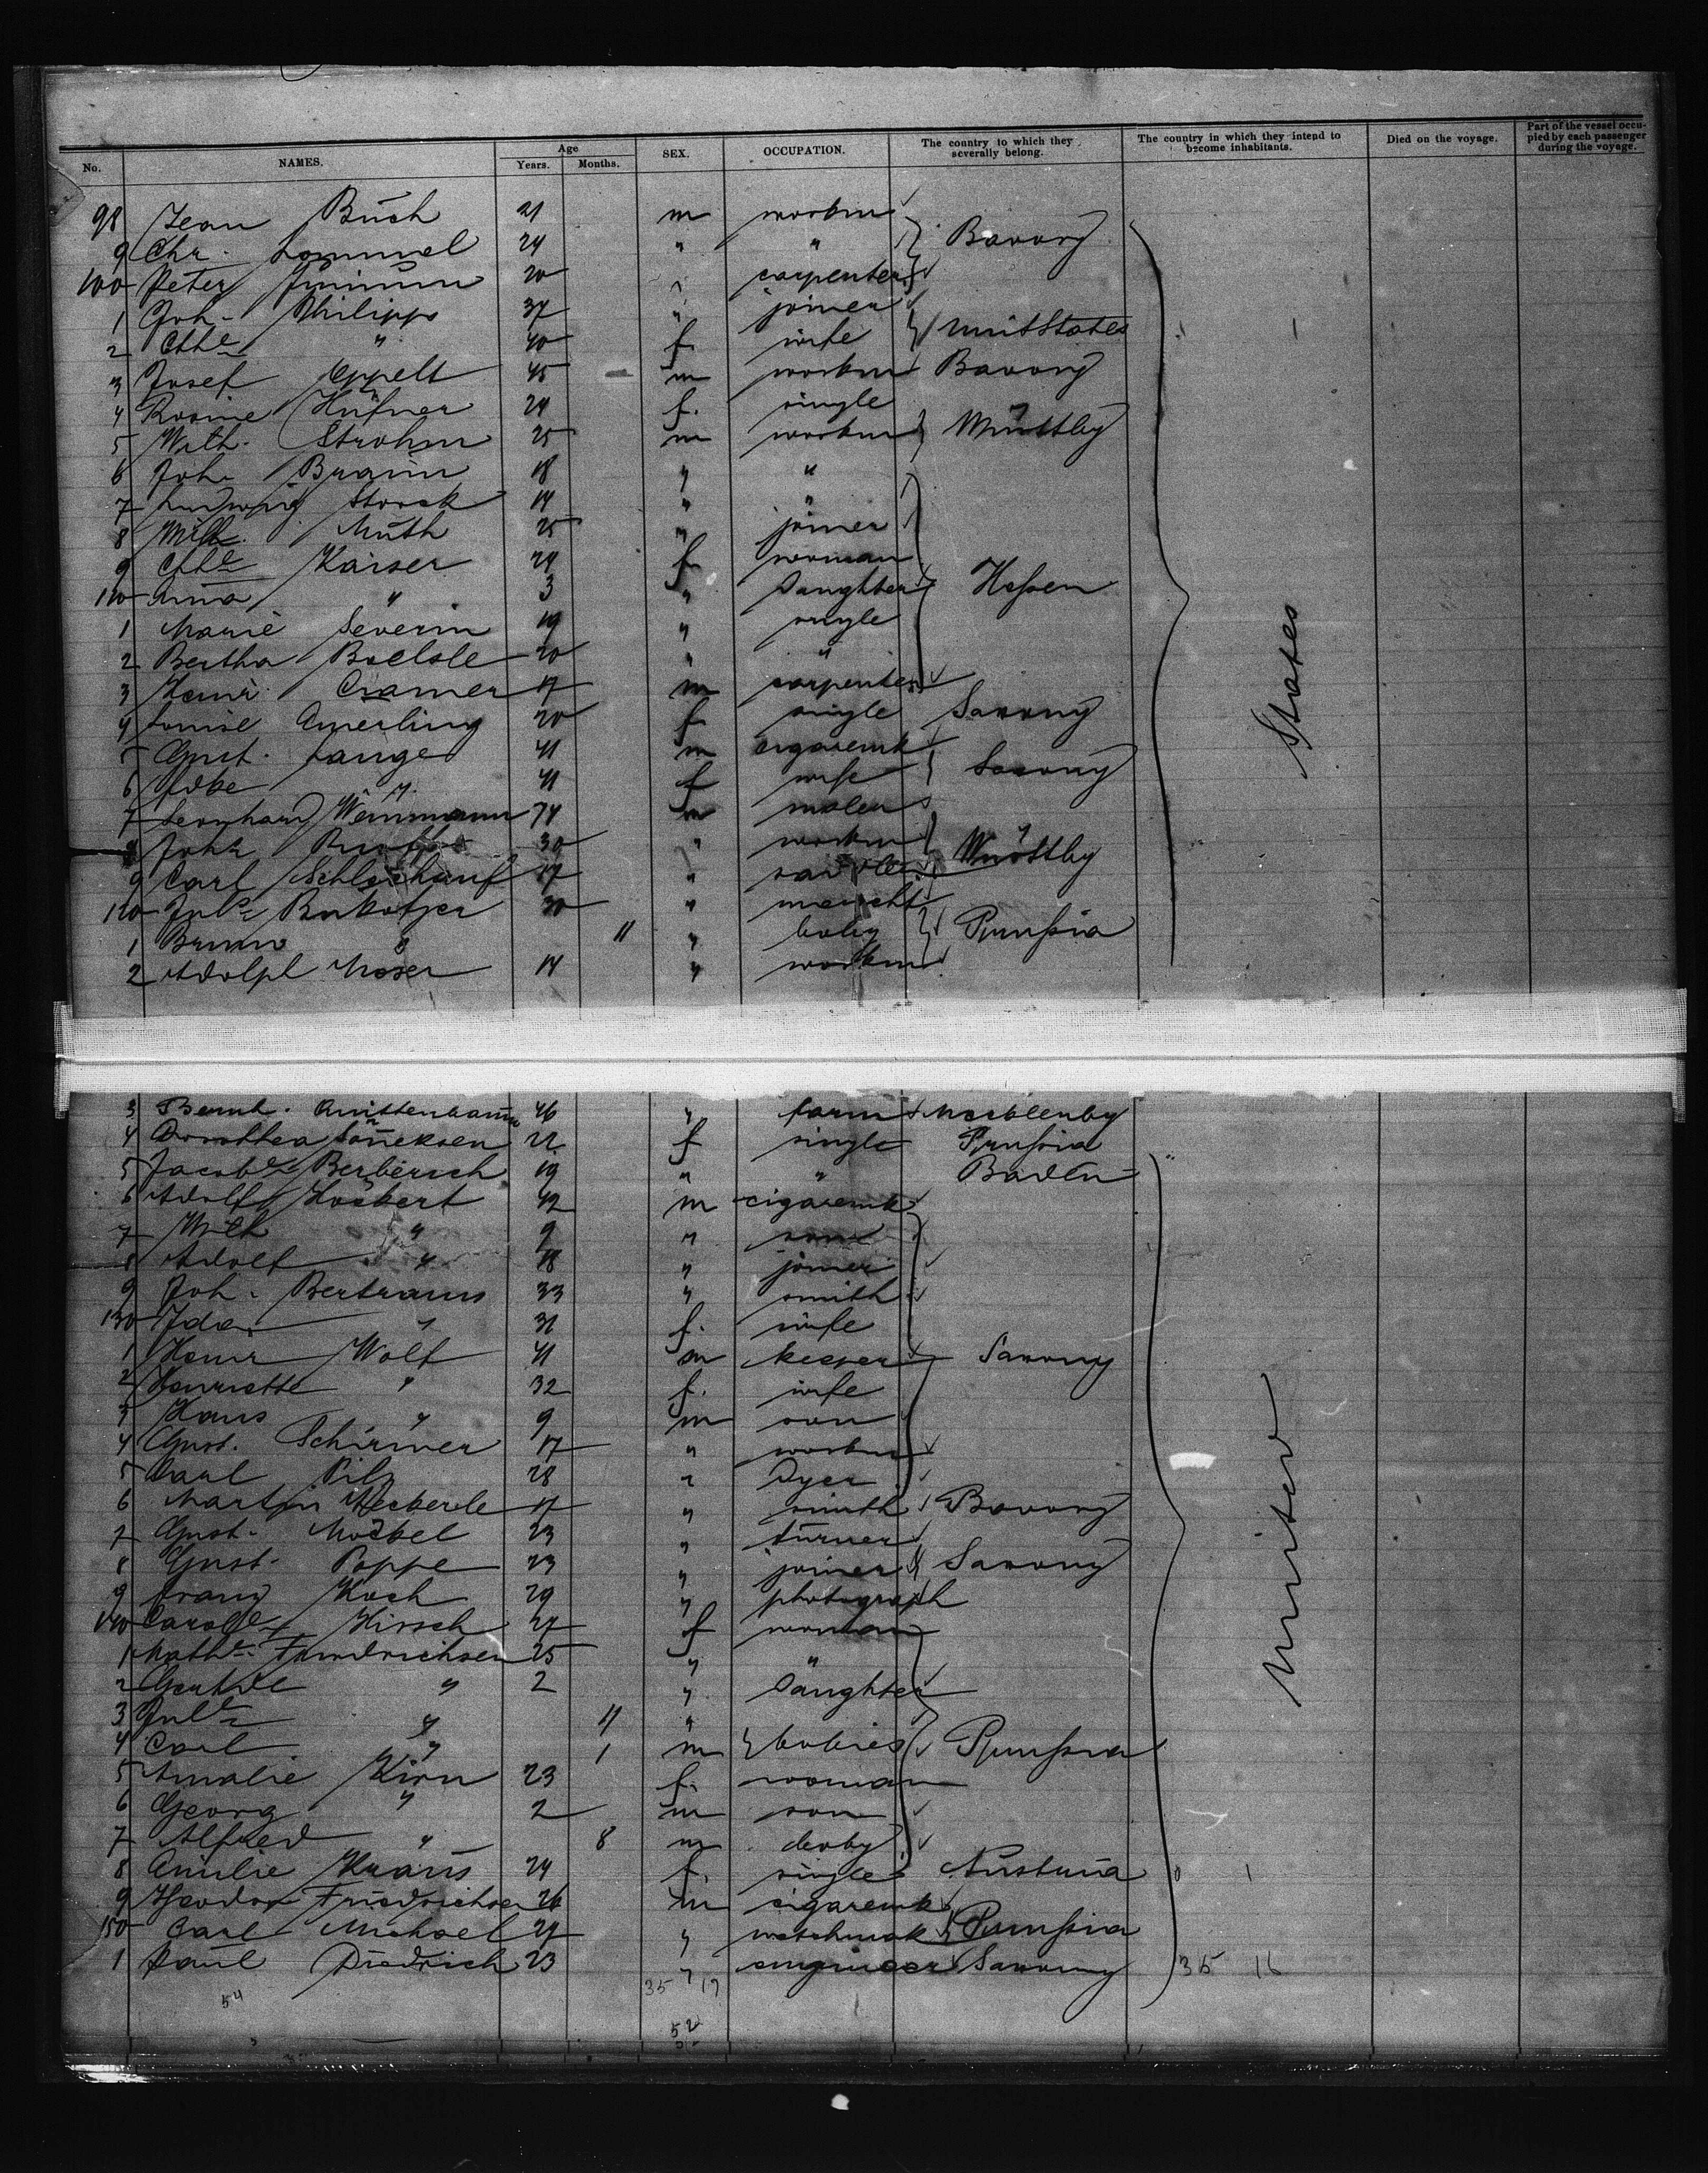 No. NAMES. Age Years. Months. SEX. OCCUPATION. The country to which they severally belong. The country in which they intend to become inhabitants. Died on the voyage. Part of the vessel occupied by each passenger during the voyage.
98 Jean Büch 21 m workm
9 Chr. Lommel 24 " " Bavory
100 Peter 20 " carpenter
1 Joh. Philipps 37 " joiner
2 Cthe " 40 f. wife UnitStates
3 Josef Eppelt 45 m workm Bavory
4 Rosine Hüfner 24 f. single
5 Wilh. Strohm 25 m workm Württbg
6 Joh. Braün 18 " "
7 Ludwig Storck 14 " "
8 Wilh. Müth 25 " joiner
9 Cthe Kaiser 24 f. woman
110 Anna " 3 " Daughter Hessen
1 Marie Severin 19 " single
2 Bertha Boelsle 20 " "
3 Heinr. Cramer 17 m carpenter
4 Louise Amerling 20 f. single Saxony
5 Gust. Lange 41 m cigaremk
6 " 41 f wife Saxony
7 Leonhard Weinmann 74 m maler
8 Joh. 30 " workm Württbg
9 Carl 17 " sadtler
120 30 " marcht
1 Bruno " 11 " baby Prussia
2 Adolph Moser 14 " workm
3 Bernh. 46 " farm Mecklenbg
4 Dorothea Söneksen 22 f single Prussia
5 Jacobe Berberich 19 " " Baden
6 Adolf Hoekert 42 m cigaremk
7 Wilh " 9 " son
8 Adolf " 18 " joiner
9 Joh. Bertrams 33 " smith
130 Ida " 31 f. wife
1 Heinr Wolf 41 m keeper Saxony
2 Henriette " 32 f. wife
3 Hans " 9 m son
4 Gust. Schirmer 17 " workm
5 Carl Pilz 28 " Dyer
6 Martin Heckerle 17 " smith Bavory
7 Gust. Möckel 23 " turner
8 Gust. Poppe 23 " joiner Saxony
9 Franz Koch 29 " photograph
140 Carole Hirsch 27 f woman
1 Mathe Friedrichsen 25 " "
2 " 2 " Daughter
3 Jule " 11 "
4 Carl " 1 m babies Prussia
5 Amalie Kirn 23 f. woman
6 Georg " 2 m son
7 Alfred " 8 m
8 Amilie Kraüs 24 f. single Austria
9 Theodor Friedrichsen 26 m cigaremk
150 Carl Michael 27 " watchmak Prussia
1 Paül Diedrich 23 " engineer Saxony 35 16
35 17
54
52
United States